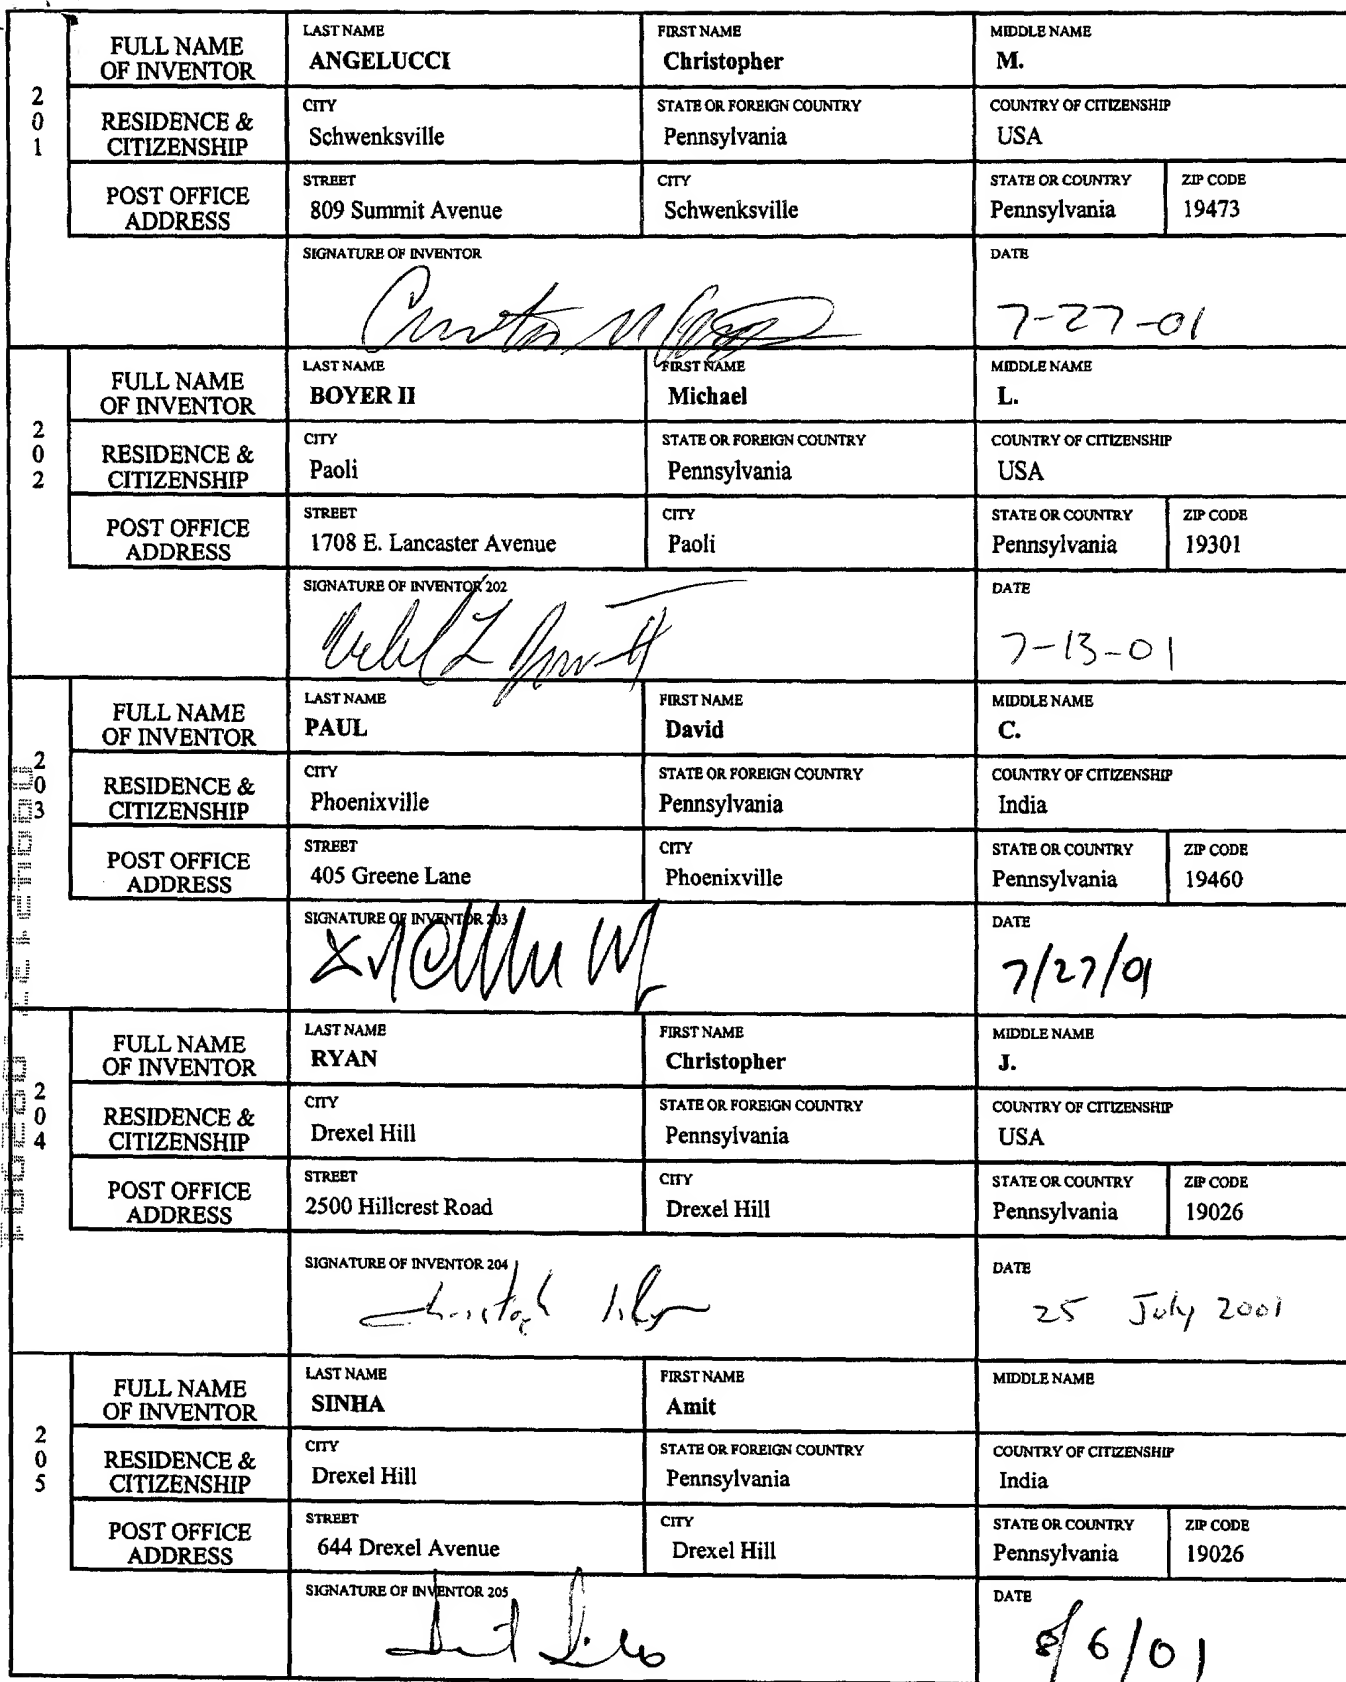 201
FULL NAME OF INVENTOR
LAST NAME
ANGELUCCI
FIRST NAME
Christopher
MIDDLE NAME
M.
RESIDENCE & CITIZENSHIP
CITY
Schwenksville
STATE OR FOREIGN COUNTRY
Pennsylvania
COUNTRY OF CITIZENSHIP
USA
POST OFFICE ADDRESS
STREET
809 Summit Avenue
CITY
Schwenksville
STATE OR COUNTRY
Pennsylvania
ZIP CODE
19473
SIGNATURE OF INVENTOR
DATE
7-27-01
202
FULL NAME OF INVENTOR
LAST NAME
BOYER II
FIRST NAME
Michael
MIDDLE NAME
L.
RESIDENCE & CITIZENSHIP
CITY
Paoli
STATE OR FOREIGN COUNTRY
Pennsylvania
COUNTRY OF CITIZENSHIP
USA
POST OFFICE ADDRESS
STREET
1708 E. Lancaster Avenue
CITY
Paoli
STATE OR COUNTRY
Pennsylvania
ZIP CODE
19301
SIGNATURE OF INVENTOR 202
DATE
7-13-01
203
FULL NAME OF INVENTOR
LAST NAME
PAUL
FIRST NAME
David
MIDDLE NAME
C.
RESIDENCE & CITIZENSHIP
CITY
Phoenixville
STATE OR FOREIGN COUNTRY
Pennsylvania
COUNTRY OF CITIZENSHIP
India
POST OFFICE ADDRESS
STREET
405 Greene Lane
CITY
Phoenixville
STATE OR COUNTRY
Pennsylvania
ZIP CODE
19460
SIGNATURE OF INVENTOR 203
DATE
7/27/01
204
FULL NAME OF INVENTOR
LAST NAME
RYAN
FIRST NAME
Christopher
MIDDLE NAME
J.
RESIDENCE & CITIZENSHIP
CITY
Drexel Hill
STATE OR FOREIGN COUNTRY
Pennsylvania
COUNTRY OF CITIZENSHIP
USA
POST OFFICE ADDRESS
STREET
2500 Hillcrest Road
CITY
Drexel Hill
STATE OR COUNTRY
Pennsylvania
ZIP CODE
19026
SIGNATURE OF INVENTOR 204
DATE
25 July 2001
205
FULL NAME OF INVENTOR
LAST NAME
SINHA
FIRST NAME
Amit
MIDDLE NAME
RESIDENCE & CITIZENSHIP
CITY
Drexel Hill
STATE OR FOREIGN COUNTRY
Pennsylvania
COUNTRY OF CITIZENSHIP
India
POST OFFICE ADDRESS
STREET
644 Drexel Avenue
CITY
Drexel Hill
STATE OR COUNTRY
Pennsylvania
ZIP CODE
19026
SIGNATURE OF INVENTOR 205
DATE
8/6/01